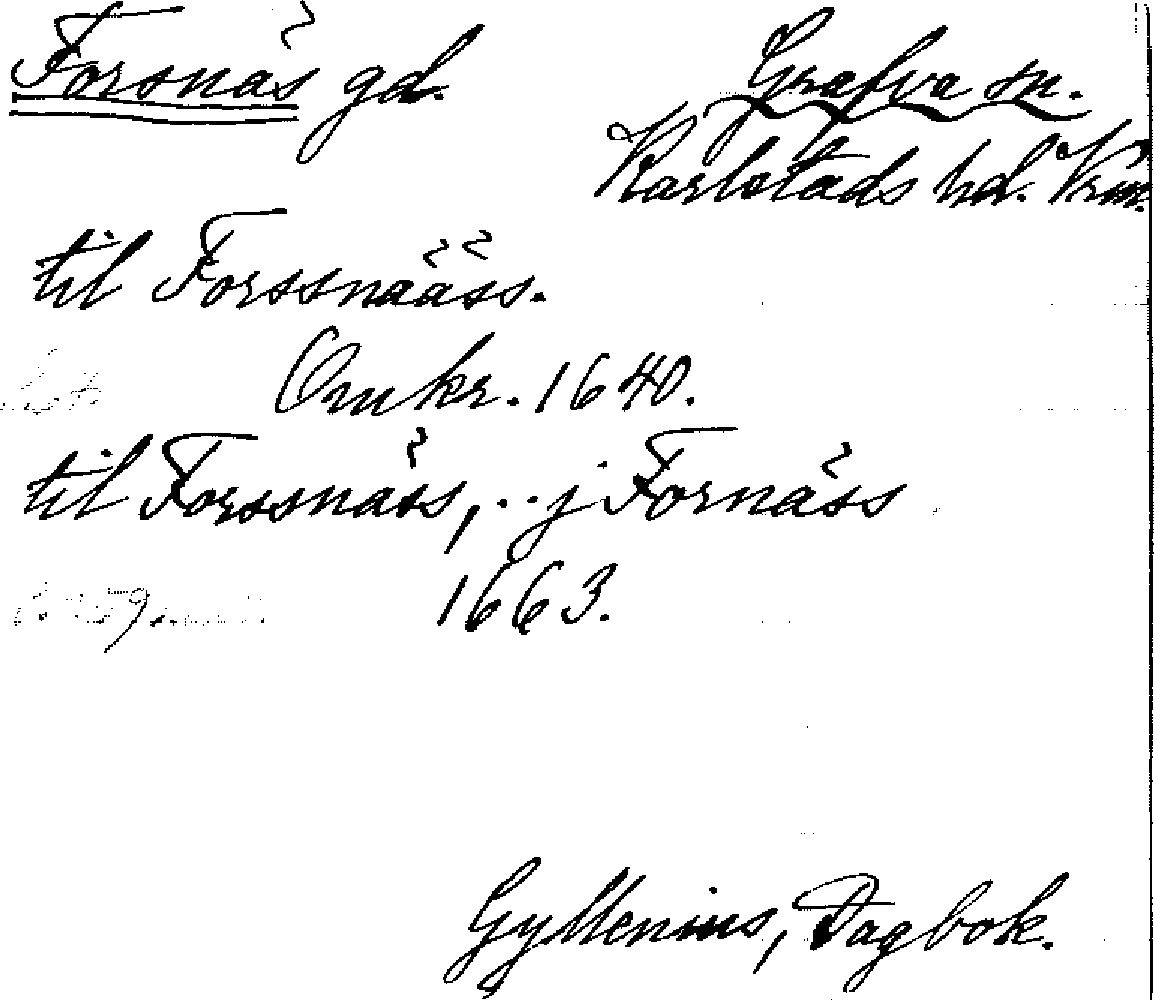 Forsnäs gd.
Grafva sn.
Karlstads hd. Vrm.
til Forssnääss.
Omkr. 1640.
til Forssnäss, .. j Fornäss
1663.
Gyllenius, Dagbok.